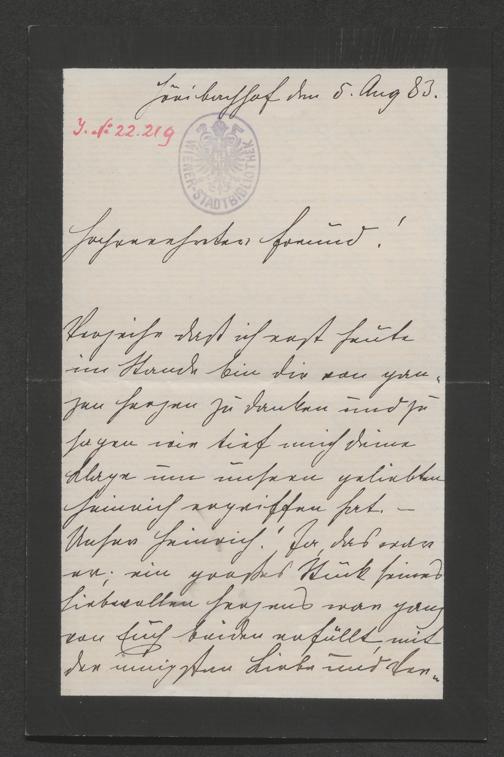 Höribachhof den 5. Aug 83.
J. № 22.219
WIENER-STADTBIBLIOTHEK
Hochverehrter Freund!
Verzeihe daß ich erst heute
im Stande bin dir von gan-
zen Herzen zu danken und zu
sagen wie tief mich deine
Klage um unsern geliebten
Heinrich ergriffen hat. –
Unser Heinrich! Ja, das war
er; ein großes Stück seines
liebevollen Herzens war ganz
von Euch beiden erfüllt mit
der innigsten Liebe und Ver-